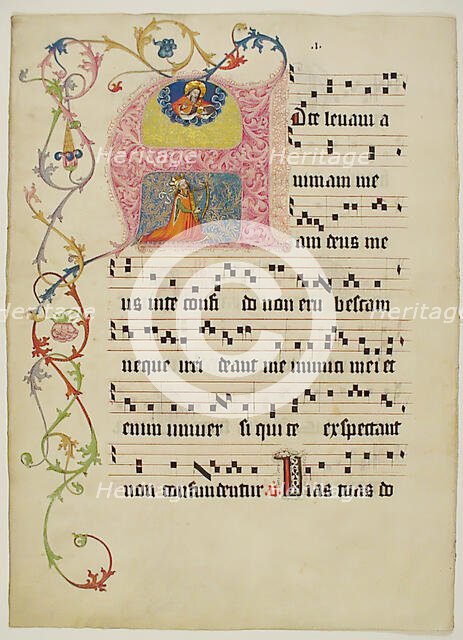 .I.
A Dte levavi a
nimam me
am deus me
us in te confi do non eru bescam
neque irri deant me inimici mei et
enim univer si qui te expectant
non confundentur Vias tuas do
Heritage Heritage Heritage
Heritage Heritage Heritage
Heritage Heritage Heritage